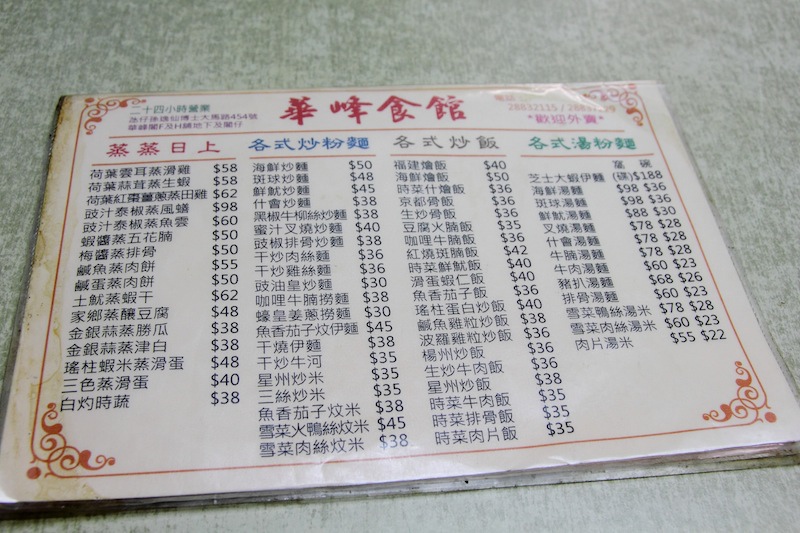 二十四小時營業
氹仔孫逸仙博士大馬路454號
華峰閣F及H舖地下及閣仔
華峰食館
28832115
*歡迎外賣*
蒸蒸日上
荷葉雲耳蒸滑雞 $58
荷葉蒜茸蒸生蝦 $58
荷葉紅棗薑蔥蒸田雞 $62
豉汁泰椒蒸風鱔 $98
豉汁泰椒蒸魚雲 $60
蝦醬蒸五花腩 $50
梅醬蒸排骨 $50
鹹魚蒸肉餅 $55
鹹蛋蒸肉餅 $50
土魷蒸蝦干 $62
家鄉蒸釀豆腐 $48
金銀蒜蒸勝瓜 $38
金銀蒜蒸津白 $38
瑤柱蝦米蒸滑蛋 $48
三色蒸滑蛋 $40
白灼時蔬 $38
各式炒粉麵
海鮮炒麵 $50
斑球炒麵 $48
鮮魷炒麵 $45
什會炒麵 $38
黑椒牛柳絲炒麵 $38
蜜汁叉燒炒麵 $40
豉椒排骨炒麵 $38
干炒肉絲麵 $36
干炒雞絲麵 $36
豉油皇炒麵 $30
咖哩牛腩撈麵 $38
蠔皇姜蔥撈麵 $30
魚香茄子炆伊麵 $45
干燒伊麵 $36
干炒牛河 $35
星州炒米 $35
三絲炒米 $35
魚香茄子炆米 $38
雪菜火鴨絲炆米 $45
雪菜肉絲炆米 $38
各式炒飯
福建燴飯 $40
海鮮燴飯 $50
時菜什燴飯 $38
京都骨飯 $36
生炒骨飯 $36
豆腐火腩飯 $35
咖哩牛腩飯 $36
紅燒斑腩飯 $42
時菜鮮魷飯 $40
滑蛋蝦仁飯 $40
魚香茄子飯 $36
瑤柱蛋白炒飯 $40
鹹魚雞粒炒飯 $38
波羅雞粒炒飯 $36
楊州炒飯 $36
生炒牛肉飯 $36
星州炒飯 $38
時菜牛肉飯 $35
時菜排骨飯 $35
時菜肉片飯 $35
各式湯粉麵
窩 碗
芝士大蝦伊麵 (碟)$188
海鮮湯麵 $98 $36
斑球湯麵 $98 $36
鮮魷湯麵 $88 $30
叉燒湯麵 $78 $28
什會湯麵 $78 $28
牛腩湯麵 $78 $28
牛肉湯麵 $60 $23
豬扒湯麵 $68 $26
排骨湯麵 $60 $23
雪菜鴨絲湯米 $78 $28
雪菜肉絲湯米 $60 $23
肉片湯米 $55 $22